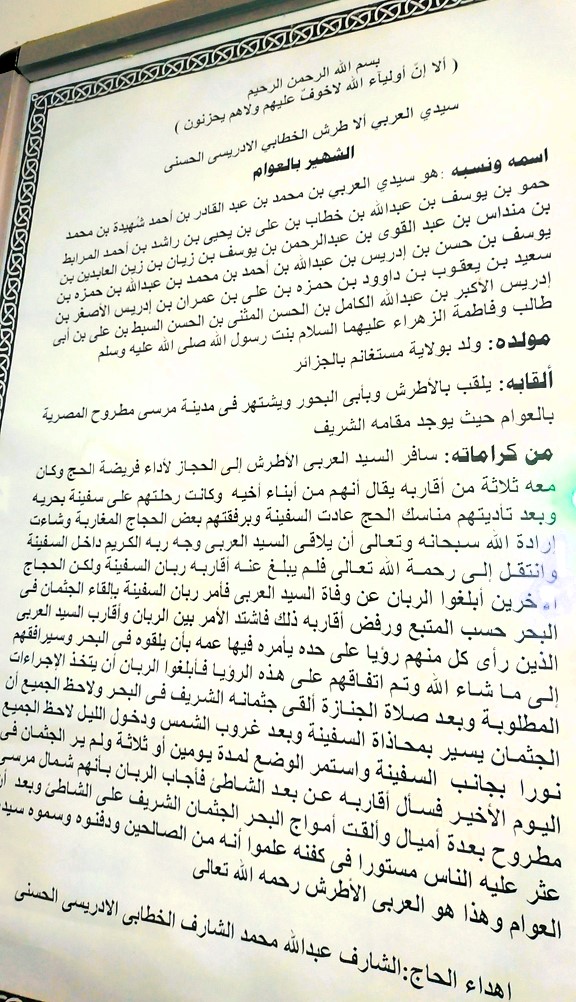 بسم الله الرحمن الرحيم
( ألا إنّ أولياء الله لاخوفٌ عليهم ولاهم يحزنون )
سيدي العربي ألا طرش الخطابي الادريسى الحسنى
الشهير بالعوام
اسمه ونسبه :هو سيدي العربي بن محمد بن عبد القادر بن أحمد شهيدة بن محمد
حمو بن يوسف بن عبدالله بن خطاب بن على بن يحيى بن راشد بن أحمد المرابط
بن منداس بن عبد القوى بن عبدالرحمن بن يوسف بن زيان بن زين العابدين بن
يوسف بن حسن بن إدريس بن عبدالله بن أحمد بن محمد بن عبدالله بن حمزه بن
سعيد بن يعقوب بن داوود بن حمزه بن على بن عمران بن إدريس الأصغر بن
إدريس الأكبر بن عبدالله الكامل بن الحسن المثنى بن الحسن السبط بن على بن أبى
طالب وفاطمة الزهراء عليهما السلام بنت رسول الله صلى الله عليه وسلم
مولده: ولد بولاية مستغانم بالجزائر
ألقابه: يلقب بالأطرش وبأبى البحور ويشتهر فى مدينة مرسى مطروح المصرية
بالعوام حيث يوجد مقامه الشريف
من كراماته: سافر السيد العربى الأطرش إلى الحجاز لأداء فريضة الحج وكان
معه ثلاثة من أقاربه يقال أنهم من أبناء أخيه وكانت رحلتهم على سفينة بحريه
وبعد تأديتهم مناسك الحج عادت السفينة وبرفقتهم بعض الحجاج المغاربة وشاءت
إرادة الله سبحانه وتعالى أن يلاقى السيد العربى وجه ربه الكريم داخل السفينة
وانتقل إلى رحمة الله تعالى فلم يبلغ عنه أقاربه ربان السفينة ولكن الحجاج
خرين أبلغوا الربان عن وفاة السيد العربى فأمر ربان السفينة بإلقاء الجثمان فى
البحر حسب المتبع ورفض أقاربه ذلك فاشتد الأمر بين الربان وأقارب السيد العربى
الذين رأى كل منهم رؤيا على حده يأمره فيها عمه بأن يلقوه فى البحر وسيرافقهم
إلى ما شاء الله وتم اتفاقهم على هذه الرؤيا فأبلغوا الربان أن يتخذ الإجراءات
المطلوبة وبعد صلاة الجنازة ألقى جثمانه الشريف فى البحر ولاحظ الجميع أن
الجثمان يسير بمحاذاة السفينة وبعد غروب الشمس ودخول الليل لاحظ الجميع
نورا بجانب السفينة واستمر الوضع لمدة يومين أو ثلاثة ولم ير الجثمان فى
اليوم الأخير فسأل أقاربه عن بعد الشاطئ فأجاب الربان بأنهم شمال مرسى
مطروح بعدة أميال وألقت أمواج البحر الجثمان الشريف على الشاطئ وبعد أن
عثر عليه الناس مستورا فى كفنه علموا أنه من الصالحين ودفنوه وسموه سيدى
العوام وهذا هو العربى الأطرش رحمه الله تعالى
إهداء الحاج:الشارف عبدالله محمد الشارف الخطابى الادريسى الحسنى